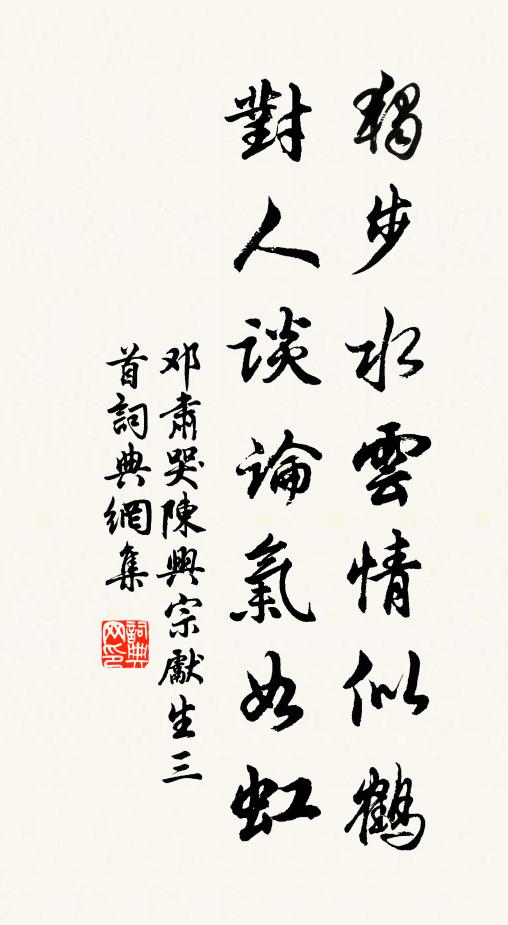 獨步水雲情似鶴
對人談論氣如虹
邓肅哭陳興宗獻生三
首詞典網集
詞典网印